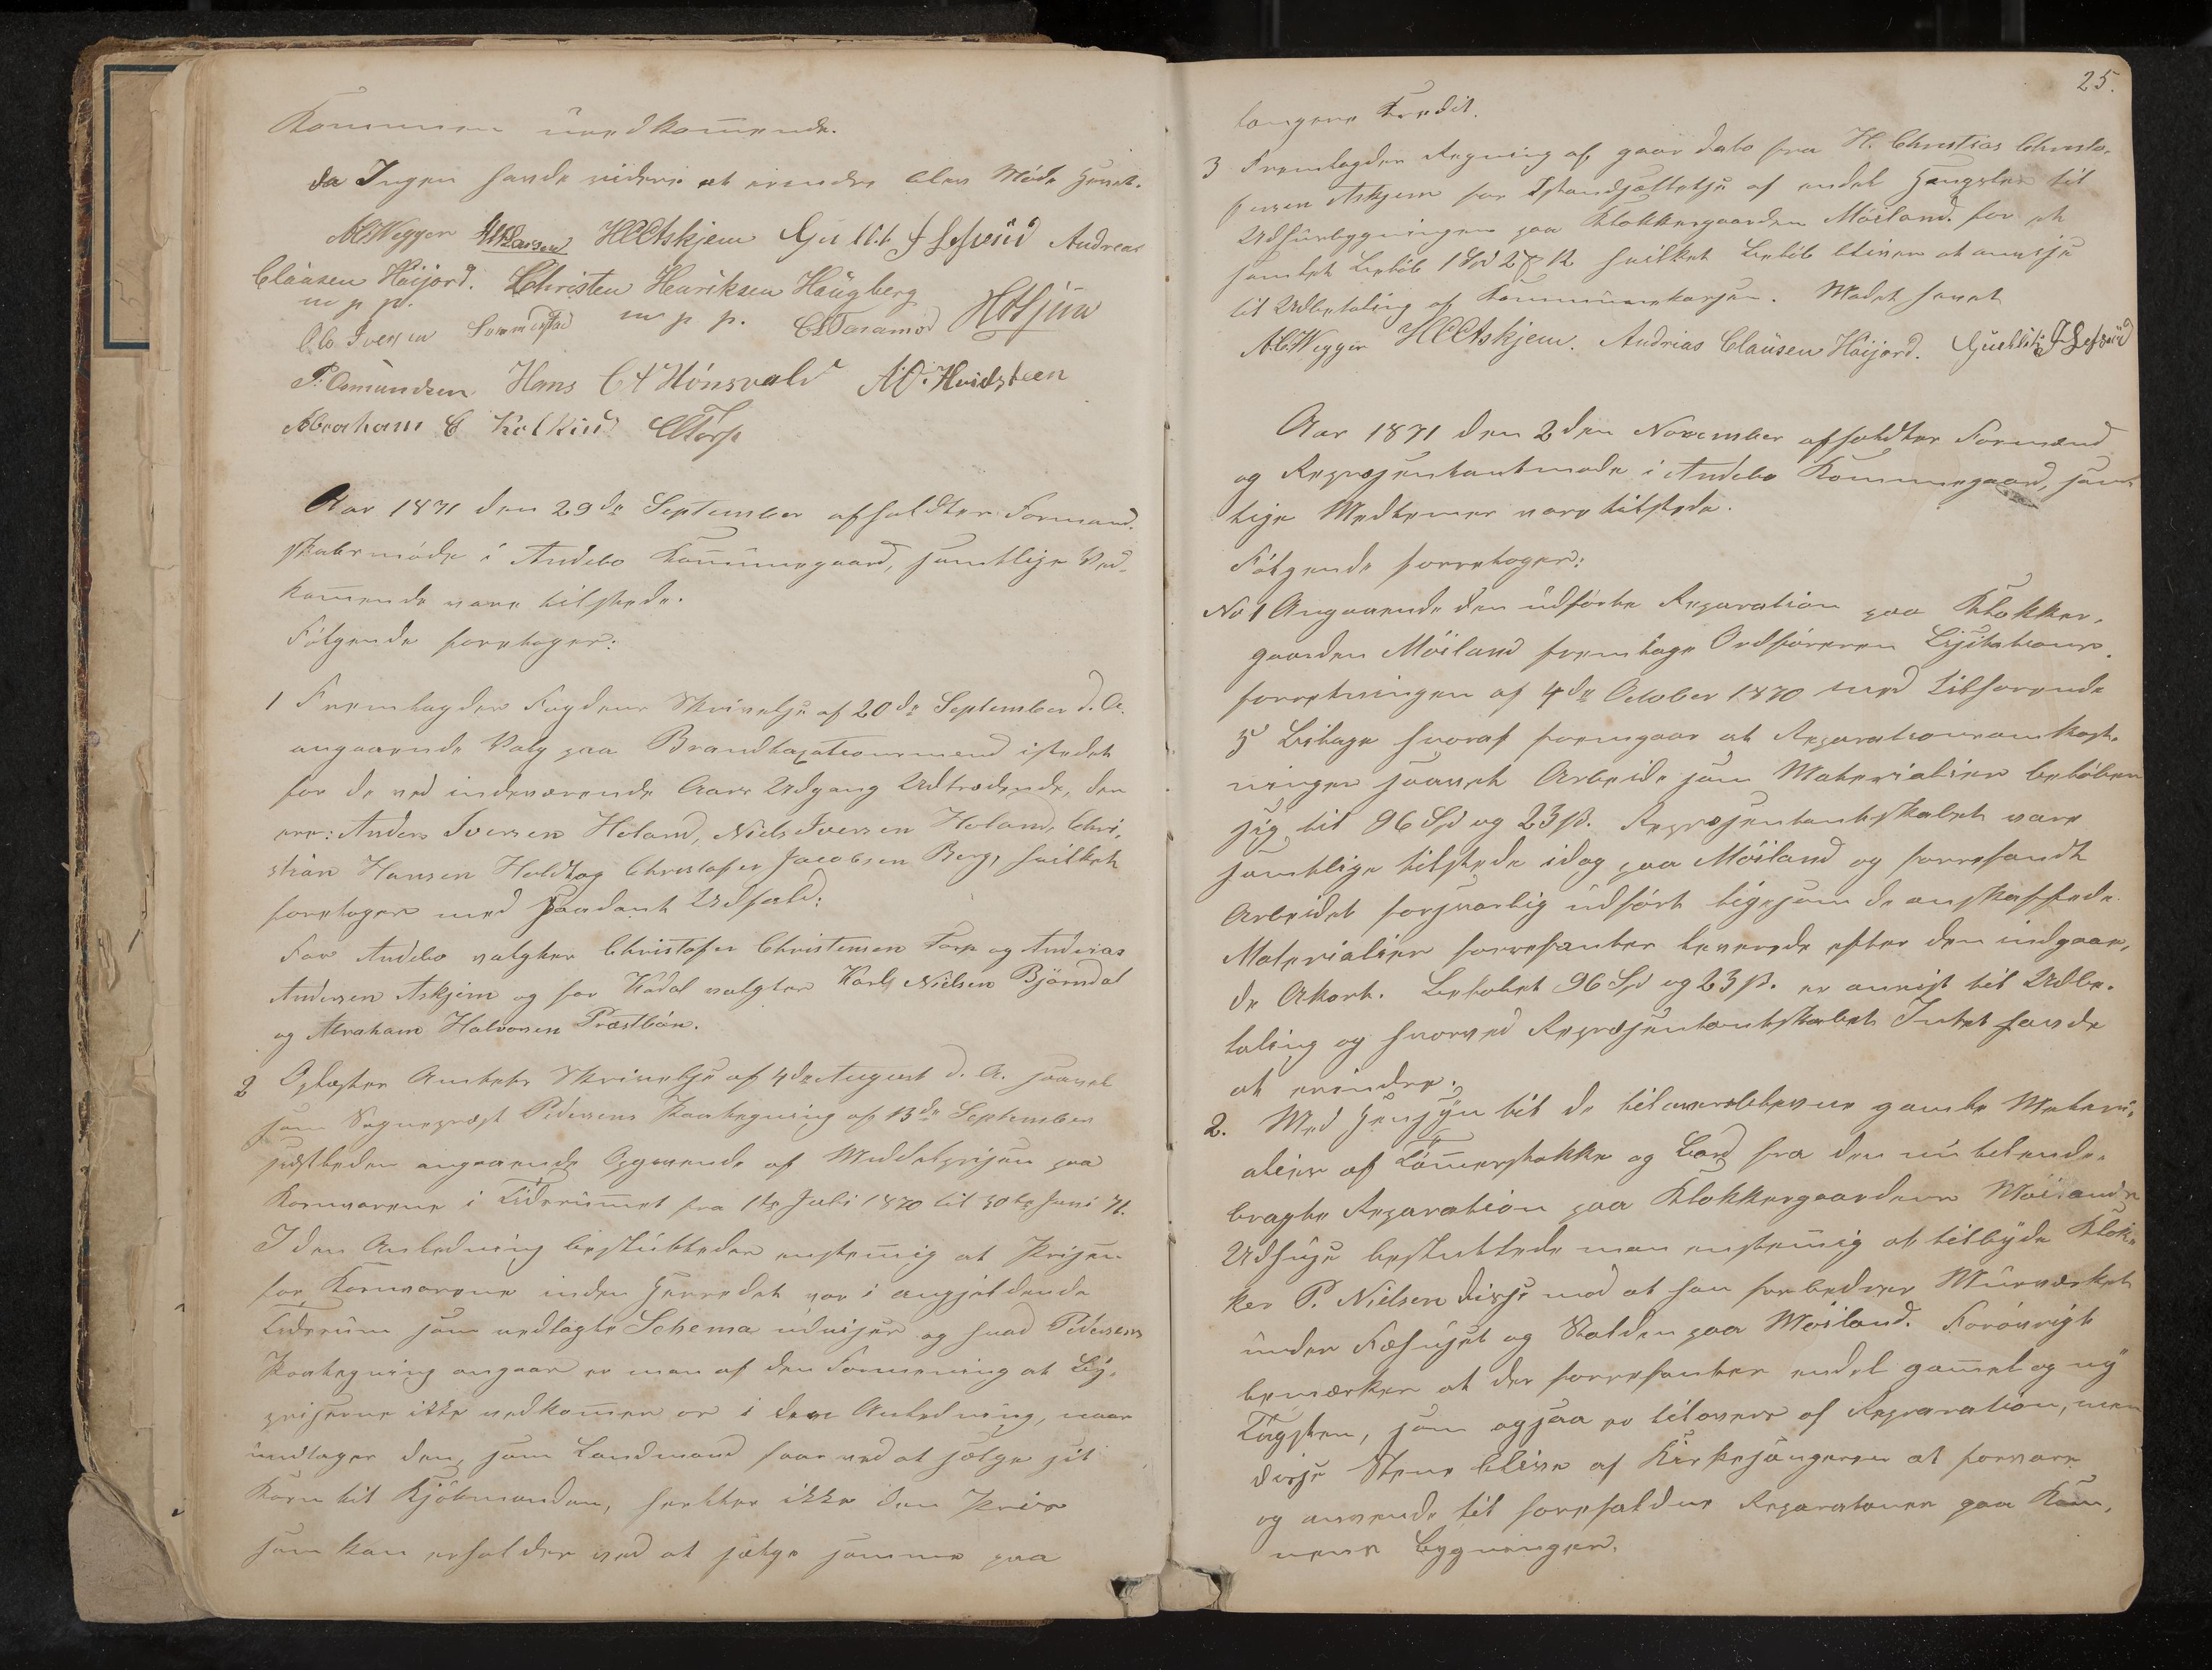 Kommunen uvedkommende.
da Ingen havde videre at erindre blev Møde hævet.
A.C. Wegger H. Larsen H C Askjem Andreas
Clausen Høijord. Christen Henriksen Haugberg
m p p. m p p.
O. O. Iversen Sommerstad
P. Omundsen Hans C Hønsvald A. O. Hvidsteen
Abraham C Kolkind C Torp
Aar 1871 den 29de September afholdtes Formand-
skabsmøde i Andebo Kommunegaard, samtlige Ved-
kommende vare tilstede.
Følgende foretoges:
1 Fremlagdes Fogdens Skrivelse af 20de September d. A.
angaaende Valg paa Brandtaxationsmænd istedet
for de ved indeværende Aars Udgang Udtrædende, der
ere: Anders Iversen Holand, Niels Iversen Holand, Chri-
stian Hansen Holdt og Christofer Jacobsen Berg, hvilket
foretoges med saadant Udfald:
For Andebo valgtes Christofer Christensen Torp og Andreas
Andersen Askjem og for Kodal valgtes Karl Nielsen Bjørndal
og Abraham Halvorsen Præstbøen.
2 Oplæstes Amtets Skrivelse af 4de August d. A. saavel
som Sognepræst Pedersens Paategning af 13de September
næstleden angaaende Opgivende af Middelprisen paa
Kornvarene i Tidsrummet fra 1ste Juli 1870 til 30te Juni 71.
I den Anledning besluttedes enstemmig at Prisen
for Kornvarene inden Herredet var i angjældende
Tidsrum som vedlagte Schema udviser og hvad Pedersens
Paategning angaar er man af den Formening at By-
priserne ikke vedkommer os i den Anledning, naar
undtages den, som Landmand faar ved at sælge sit
Korn til Kjøbmanden, heller ikke den Priis
som kan erholdes ved at sælge samme paa
25.
længere Kredit.
3 Fremlagdes Regning af gaar dato fra H. Christias Christo-
fersen Askjem for Istandsættelse af endel Hængsler til
Udhusbygningen paa Klokkergaarden Møiland. for et
samlet Beløb 1 Spd 2 12 hvilket Beløb bliver at anvise
til Udbetaling af Kommunekassen. Mødet hævet
A.C. Wegger H C Askjem. Andreas Clausen Høijord.
Aar 1871 den 2den November afholdtes Formænd
og Repræsentantmøde i Andebo Kommunegaard, sam-
tlige Medlemer vare tilstede.
Følgende forretoges:
No 1 Angaaende den udførte Reparation paa Klokker-
gaarden Møiland fremlagde Ordføreren Lisitations-
forretningen af 4de October 1870 med tilhørende
5 Bilage hvoraf fremgaar at Reparationsomkost-
ninger saavel Arbeide som Materialier beløber
sig til 96 Spd og 23 ß. Repræsentantskabet vare
samtlige tilstede idag paa Møiland og forrefandt
Arbeidet forsvarlig udført ligesom de anskaffede
Materialier forrefantes leverede efter den indgaae-
de Akort. Beløbet 96 Spd og 23 ß. er anvist til Udbe-
taling og hvorved Repræsentantskabet Intet havde
at erindre.
2. Med Hensyn til de tiloversblevne gamle Materi-
alier af Tømmerstokke og Bord fra den nu tilende-
bragte Reparation paa Klokkergaardens Møilands
Udhuse besluttede man enstemmig at tilbyde Klok-
ker P. Nielsen disse mod at han forbedrer Murværket
under Fæhuset og Stalden paa Møiland. Forøvrigt
bemærkes at der forrefantes endel gammel og ny
Tagsten, som ogsaa er tilovers af Reparation, men
disse Stene blive af Kirkesangeren at forvare
og anvende til forefaldne Reparationer paa Kom-
munens Bygninger.